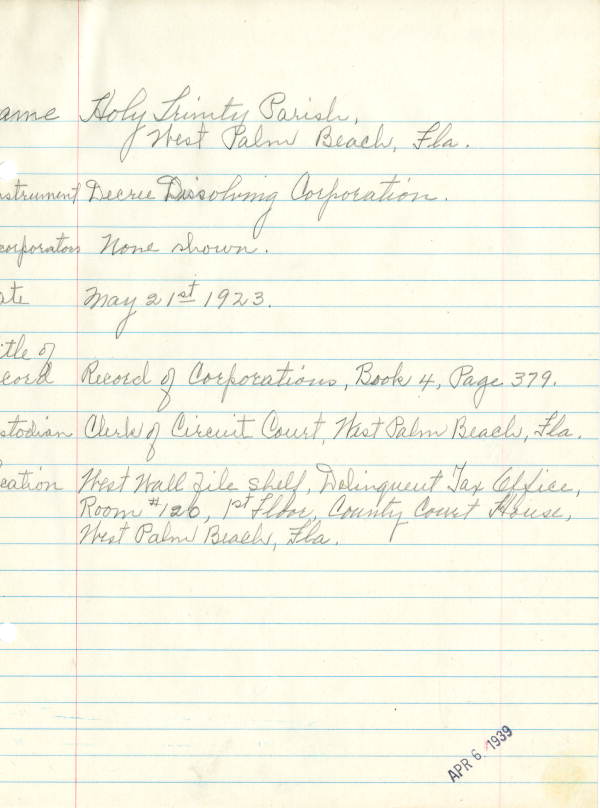 ame Holy Trinity Parish,
West Palm Beach, Fla.
nstrument Decree Dissolving Corporation.
corporators None shown.
ate May 21st 1923.
itle of
cord Record of Corporations, Book 4, Page 379.
stodian Clerk of Circuit Court, West Palm Beach, Fla.
cation West Wall File Shelf, Delinquent Tax Office,
Room #126, 1st Floor, County Court House,
West Palm Beach, Fla.
APR 6 1939